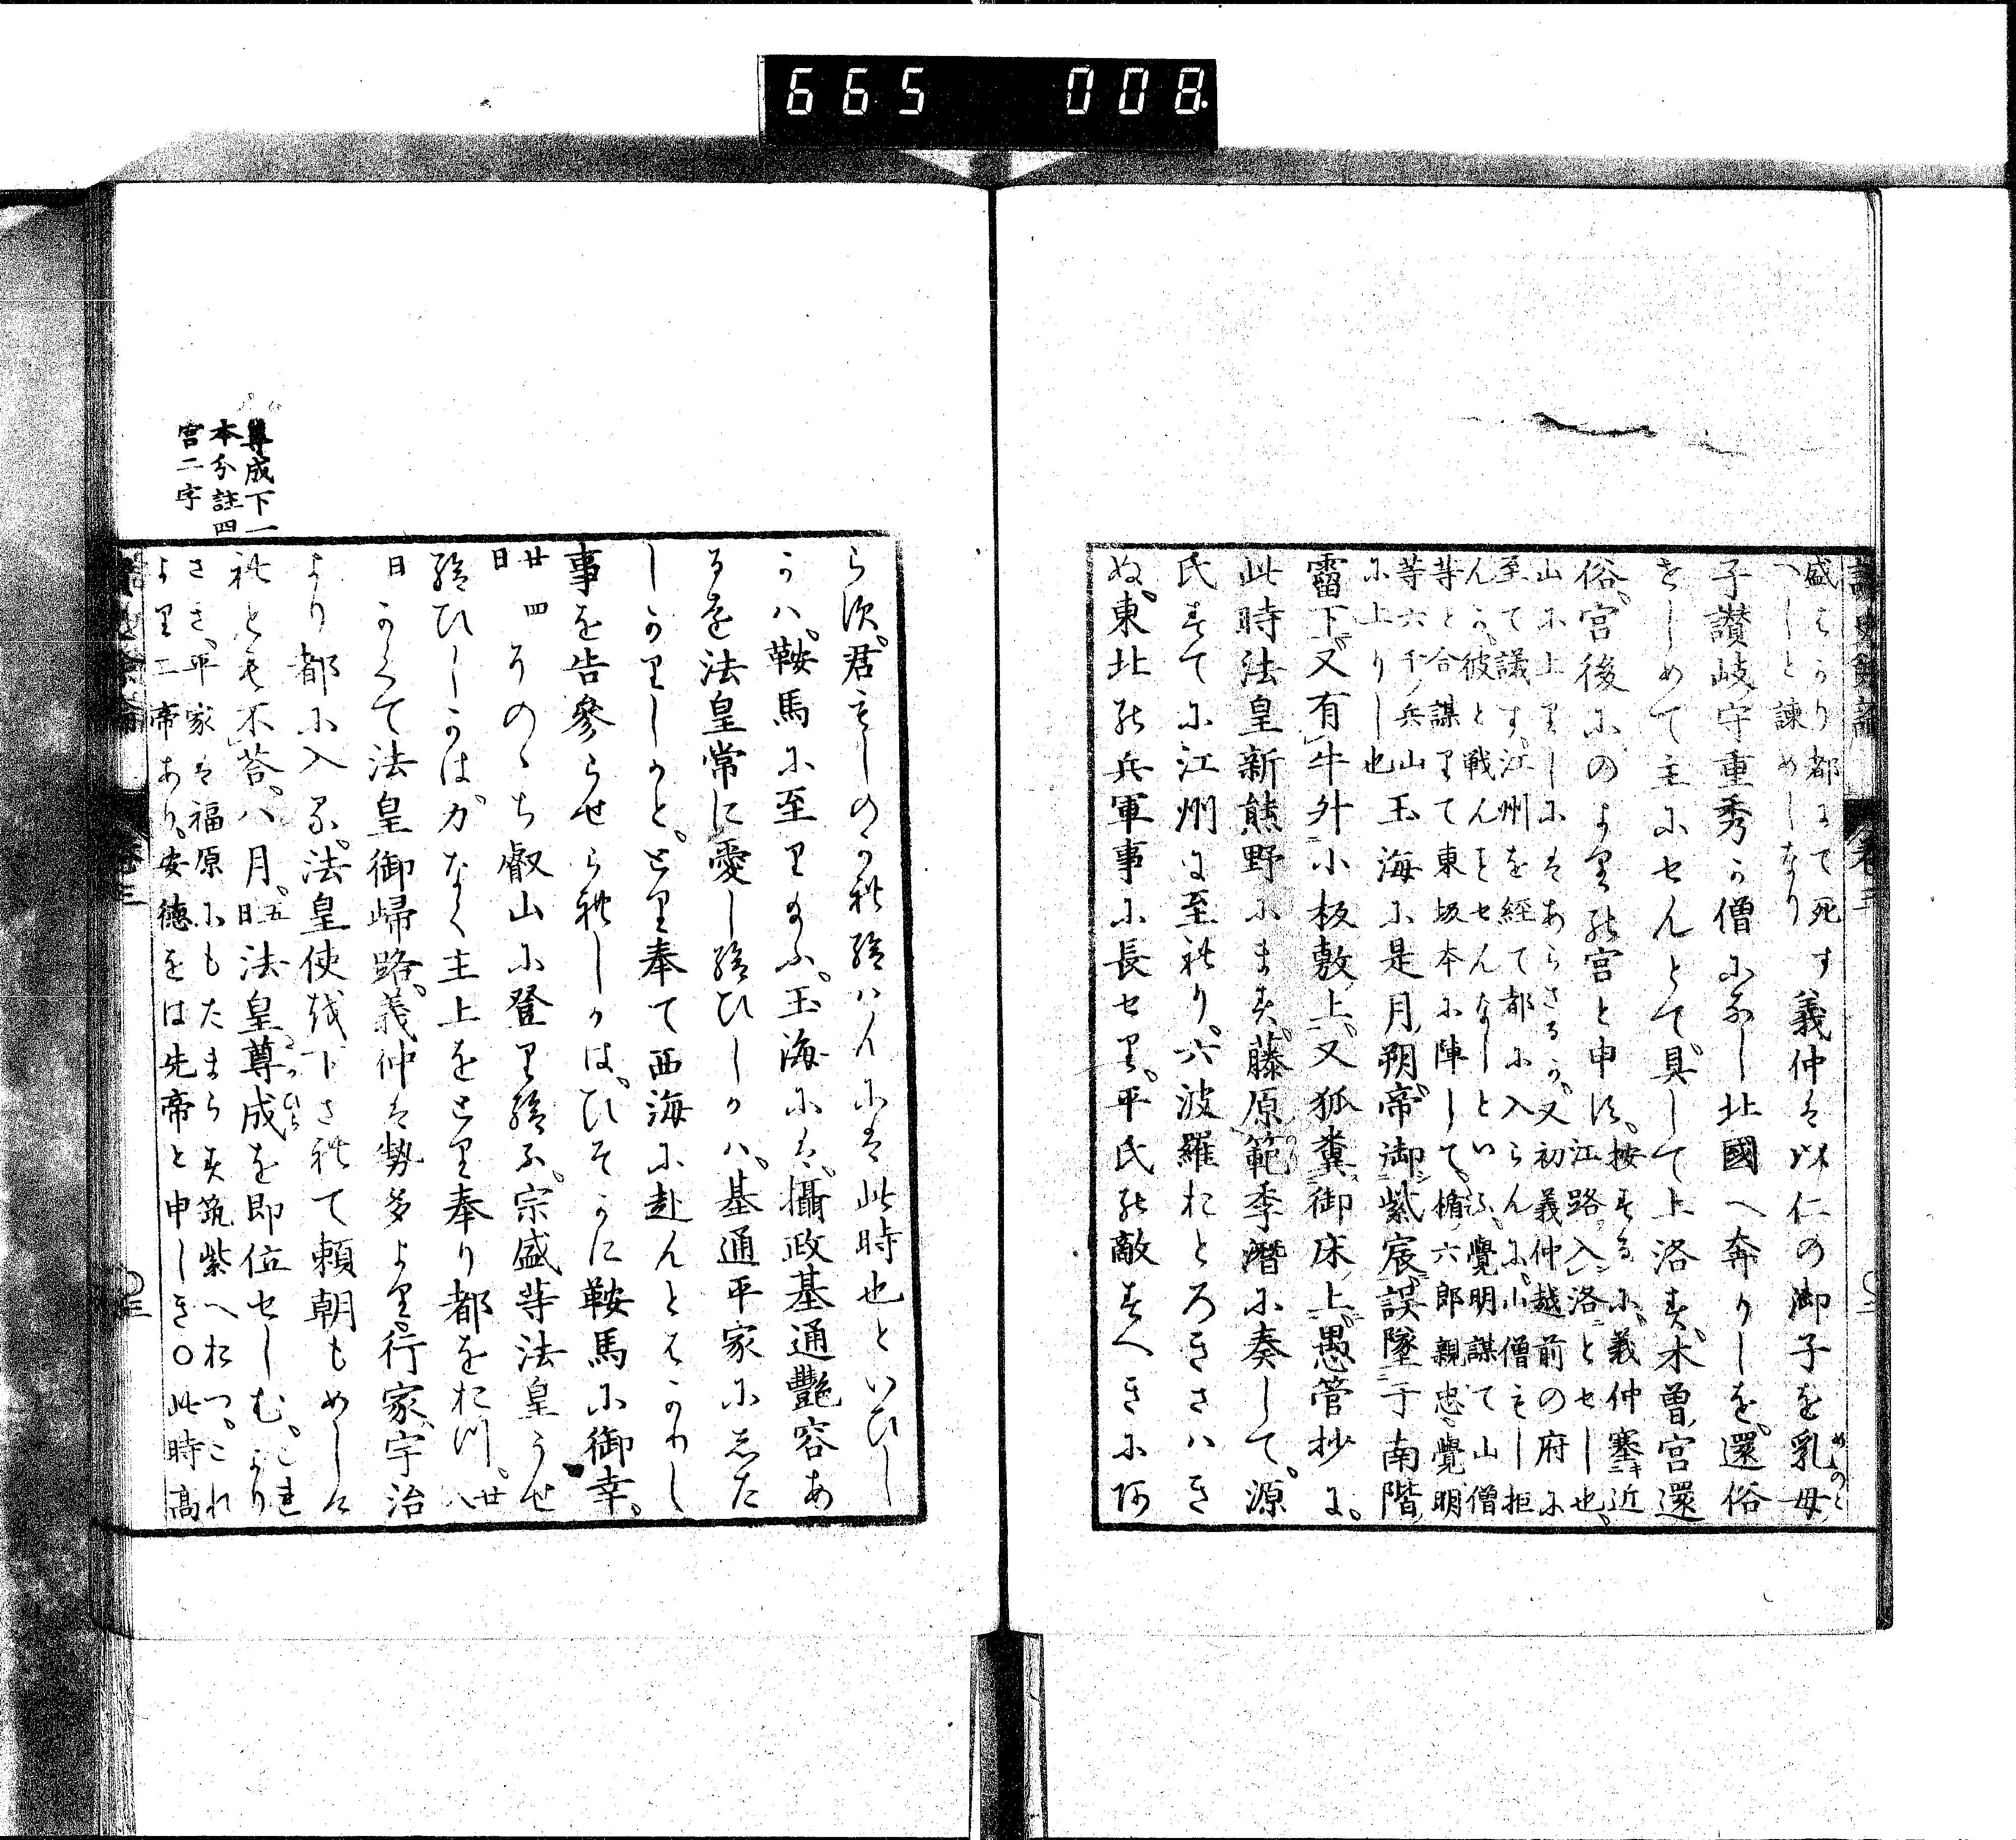 665 008
讀史餘論 卷三 〇二
盛はかり都にて死す義仲は以仁の御子を乳母めのと
へしと諫めしなり
子讃岐守重秀か僧になし北國へ奔りしを還俗
せしめて主にせんとて具して上洛す木曽宮還
俗宮後にのより宮と申す按するに義仲塞キ近
江路入洛とせし也
山に上りしにはあらさるか又初義仲越前の府に
至て議す江州を経て都に入らんに山僧もし拒
んか彼と戦んもせんなしといふ覺明謀て山僧
等と合謀りて東坂本に陣して楯六郎親忠覺明
等六千ノ兵山
に上りし也
玉海に是月朔帝御紫宸誤墜于南階
霤下又有牛外小板敷上又狐糞御床上愚管抄に
此時法皇新熊野にます藤原範季潛に奏して源
氏すてに江州に至れり六波羅おとろきさハき
ぬ東北の兵軍事に長せり平氏の敵すへきにあ
らす君もしのかれ給ハんには此時也といひし
かハ鞍馬に至り給ふ玉海には攝政基通艶容あ
るを法皇常に愛し給ひしかハ基通平家にした
しかりしかととり奉て西海に赴んとはかりし
事を告參らせられしかはひそかに鞍馬に御幸
廿四日そのゝち叡山に登り給ふ宗盛等法皇うせ
給ひしかは力なく主上をとり奉り都をおつ廿八
日かくて法皇御歸路義仲は勢多より行家宇治
より都に入る法皇使を下されて頼朝もめしけ
れとも不荅八月五日法皇尊成たかひらを即位せしむこれより
さき平家は福原にもたまらす筑紫へおつこれ
より二帝あり安徳をは先帝と申しき〇此時高
尊成下一
本分註四
宮二字
讀史餘論 卷三 〇三